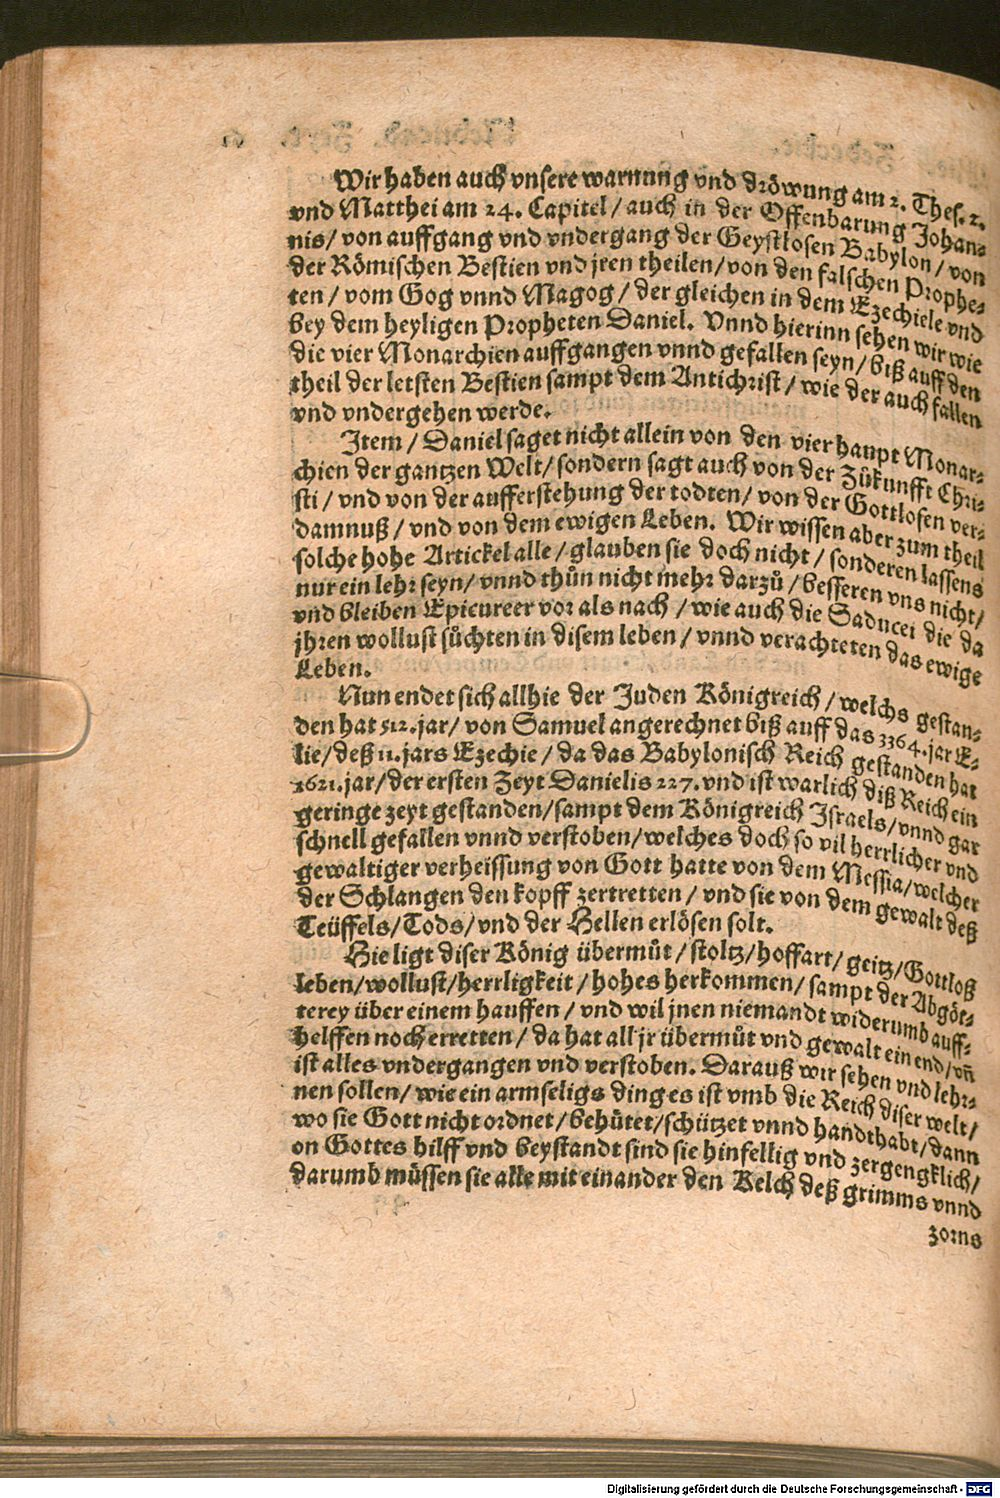 Wir haben auch vnsere warnung vnd dröwung am 2. Thes. 2.
vnd Matthei am 24. Capitel / auch in der Offenbarung Johan-
nis / von auffgang vnd vndergang der Geystlosen Babylon / von
der Römischen Bestien vnd jren theilen / von den falschen Prophe-
ten / vom Gog vnnd Magog / der gleichen in dem Ezechiele vnd
bey dem heyligen Propheten Daniel. Vnnd hierinn sehen wir wie
die vier Monarchien auffgangen vnnd gefallen seyn / biß auff den
theil der letsten Bestien sampt dem Antichrist / wie der auch fallen
vnd vndergehen werde.
Item / Daniel saget nicht allein von den vier haupt Monar-
chien der gantzen Welt / sondern sagt auch von der Zůkunfft Chri-
sti / vnd von der aufferstehung der todten / von der Gottlosen ver-
damnuß / vnd von dem ewigen Leben. Wir wissen aber zum theil
solche hohe Artickel alle / glauben sie doch nicht / sonderen lassens
nur ein lehr seyn / vnnd thůn nicht mehr darzů / besseren vns nicht /
vnd bleiben Epicureer vor als nach / wie auch die Saducei die da
jhren wollust sůchten in disem leben / vnnd verachteten das ewige
Leben.
Nun endet sich allhie der Juden Königreich / welchs gestan-
den hat 512. jar / von Samuel angerechnet biß auff das 3364. jar E-
lie / deß 11. jars Ezechie / da das Babylonisch Reich gestanden hat
1621. jar / der ersten Zeyt Danielis 227. vnd ist warlich diß Reich ein
geringe zeyt gestanden / sampt dem Königreich Israels / vnnd gar
schnell gefallen vnnd verstoben / welches doch so vil herrlicher vnd
gewaltiger verheissung von Gott hatte von dem Messia / welcher
der Schlangen den kopff zertretten / vnd sie von dem gewalt deß
Teüffels / Tods / vnd der Hellen erlösen solt.
Hie ligt diser König übermůt / stoltz / hoffart / geitz / Gottloß
leben / wollust / herrligkeit / hohes herkommen / sampt der Abgöt-
terey über einem hauffen / vnd wil jnen niemandt widerumb auff-
helffen noch erretten / da hat all jr übermůt vnd gewalt ein end / vñ
ist alles vndergangen vnd verstoben. Darauß wir sehen vnd lehr-
nen sollen / wie ein armseligs ding es ist vmb die Reich diser welt /
wo sie Gott nicht ordnet / behütet / schützet vnnd handthabt / dann
on Gottes hilff vnd beystandt sind sie hinfellig vnd zergengklich /
darumb müssen sie alle mit einander den Kelch deß grimms vnnd
zorns
Digitalisierung gefördert durch die Deutsche Forschungsgemeinschaft - DFG